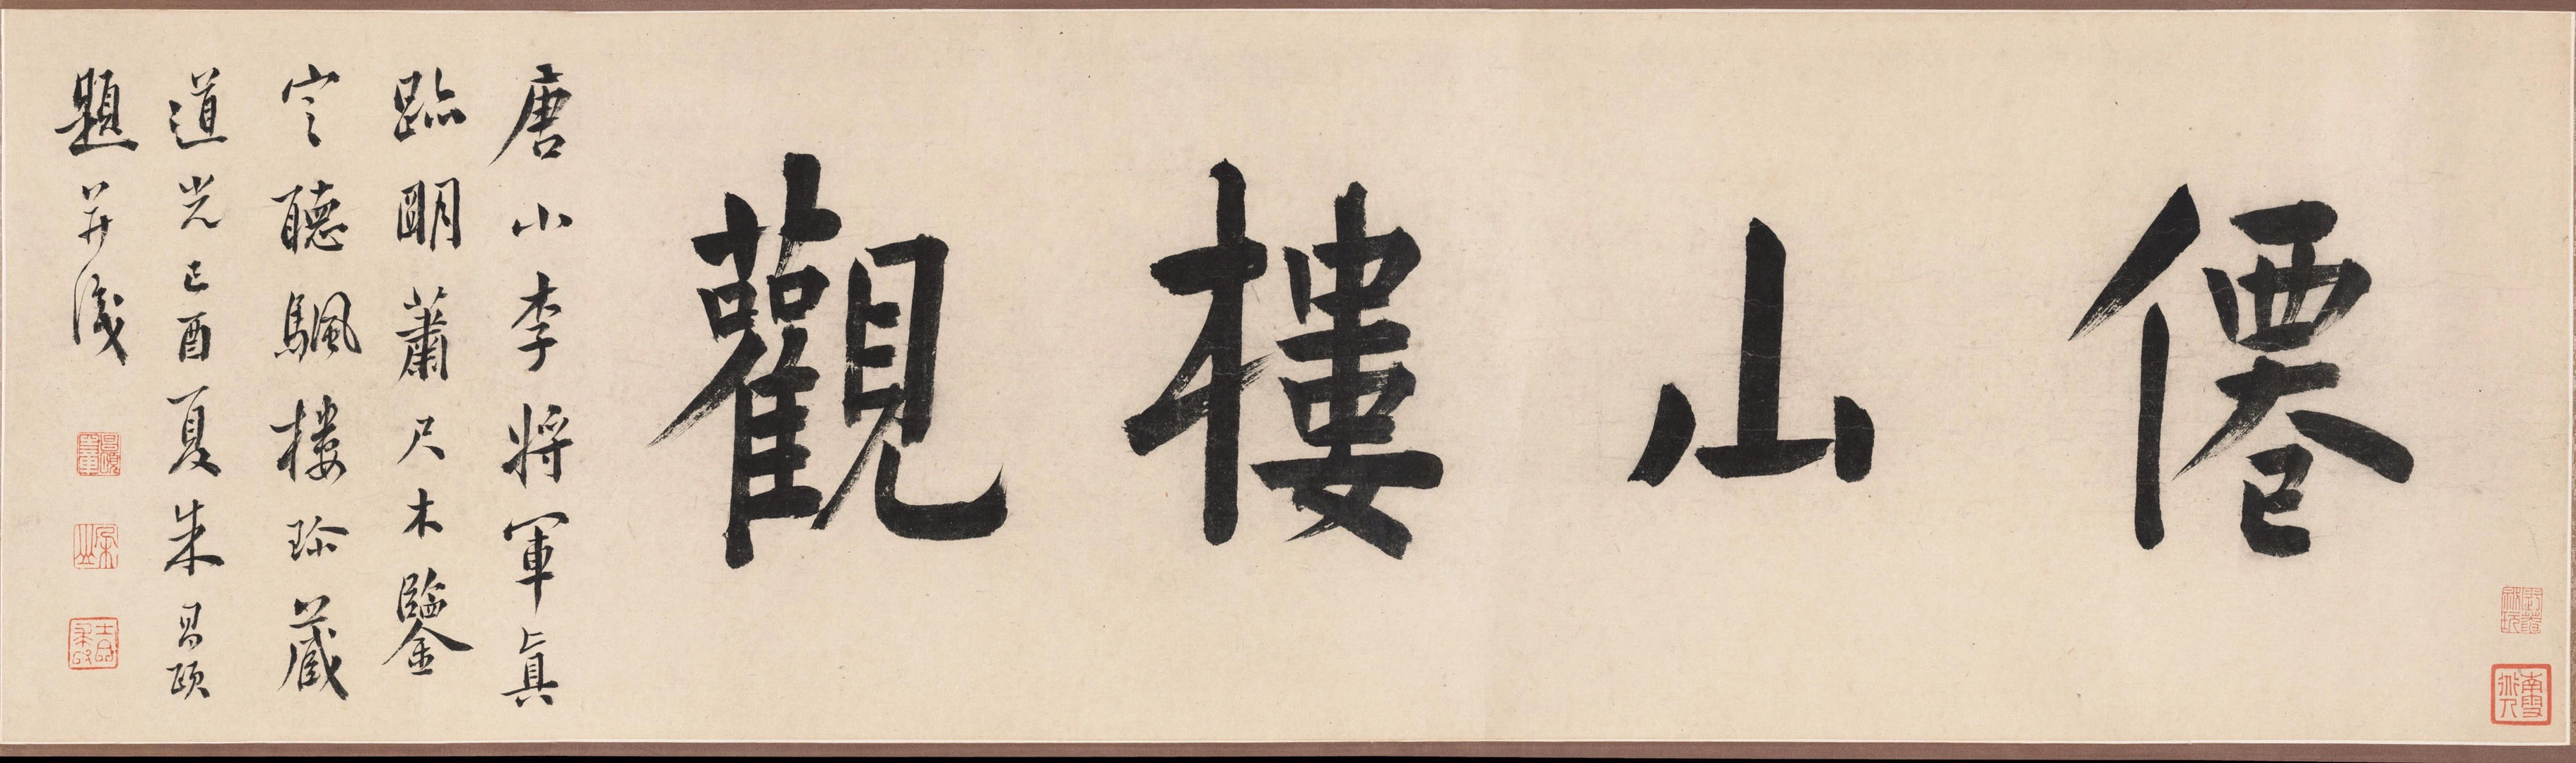 僊山樓觀
唐小李將軍眞
跡明蕭尺木鑒
定聽颿樓珍藏
道光己酉夏朱昌頤
題并識